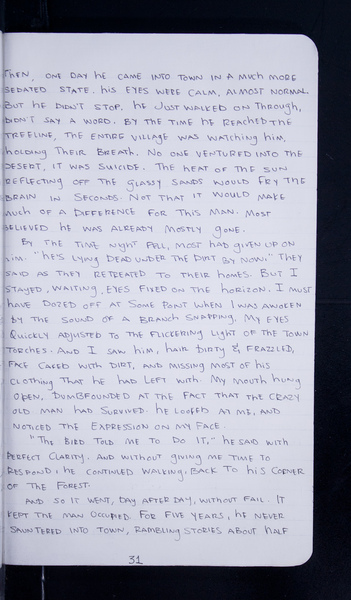 THEN, ONE DAY HE CAME INTO TOWN IN A MUCH MORE
SEDATED STATE. HIS EYES WERE CALM, ALMOST NORMAL.
BUT HE DIDN'T STOP, HE JUST WALKED ON THROUGH,
DIDN'T SAY A WORD. BY THE TIME HE REACHED THE
TREELINE, THE ENTIRE VILLAGE WAS WATCHING HIM,
HOLDING THEIR BREATH. NO ONE VENTURED INTO THE
DESERT, IT WAS SUICIDE. THE HEAT OF THE SUN
REFLECTING OFF THE GLASSY SANDS WOULD FRY THE
BRAIN IN SECONDS. NOT THAT IT WOULD MAKE
MUCH OF A DIFFERENCE FOR THIS MAN. MOST
BELIEVED HE WAS ALREADY MOSTLY GONE.
BY THE TIME NIGHT FELL, MOST HAD GIVEN UP ON
HIM. "HE'S LYING DEAD UNDER THE DIRT BY NOW." THEY
SAID AS THEY RETREATED TO THEIR HOMES. BUT I
STAYED, WAITING, EYES FIXED ON THE HORIZON. I MUST
HAVE DOZED OFF AT SOME POINT WHEN I WAS AWOKEN
BY THE SOUND OF A BRANCH SNAPPING. MY EYES
QUICKLY ADJUSTED TO THE FLICKERING LIGHT OF THE TOWN
TORCHES. AND I SAW HIM, HAIR DIRTY & FRAZZLED,
FACE CAKED WITH DIRT, AND MISSING MOST OF HIS
CLOTHING THAT HE HAD LEFT WITH. MY MOUTH HUNG
OPEN, DUMBFOUNDED AT THE FACT THAT THE CRAZY
OLD MAN HAD SURVIVED. HE LOOKED AT ME, AND
NOTICED THE EXPRESSION ON MY FACE.
"THE BIRD TOLD ME TO DO IT," HE SAID WITH
PERFECT CLARITY. AND WITHOUT GIVING ME TIME TO
RESPOND, HE CONTINUED WALKING, BACK TO HIS CORNER
OF THE FOREST.
AND SO IT WENT, DAY AFTER DAY, WITHOUT FAIL. IT
KEPT THE MAN OCCUPIED. FOR FIVE YEARS, HE NEVER
SAUNTERED INTO TOWN, RAMBLING STORIES ABOUT HALF
31